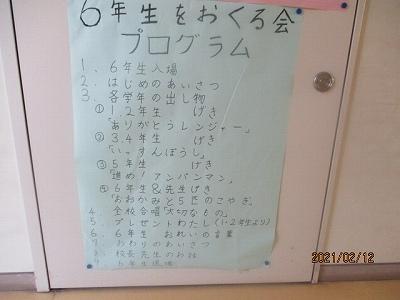 6年生をおくる会
プログラム
1. 6年生入場
2. はじめのあいさつ
3. 各学年の出し物
① 1.2年生 げき
「ありがとうレンジャー」
② 3.4年生 げき
「いっすんぼうし」
③ 5年生 げき
「進め!アンパンマン」
④ 6年生&先生げき
「おおかみと5匹のこやぎ」
4. 全校合唱「大切なもの」
5. プレゼントわたし(1・2年生より)
6. 6年生 おれいの言葉
7. おわりのあいさつ
8. 校長先生のお話
6年生退場
2021/02/12